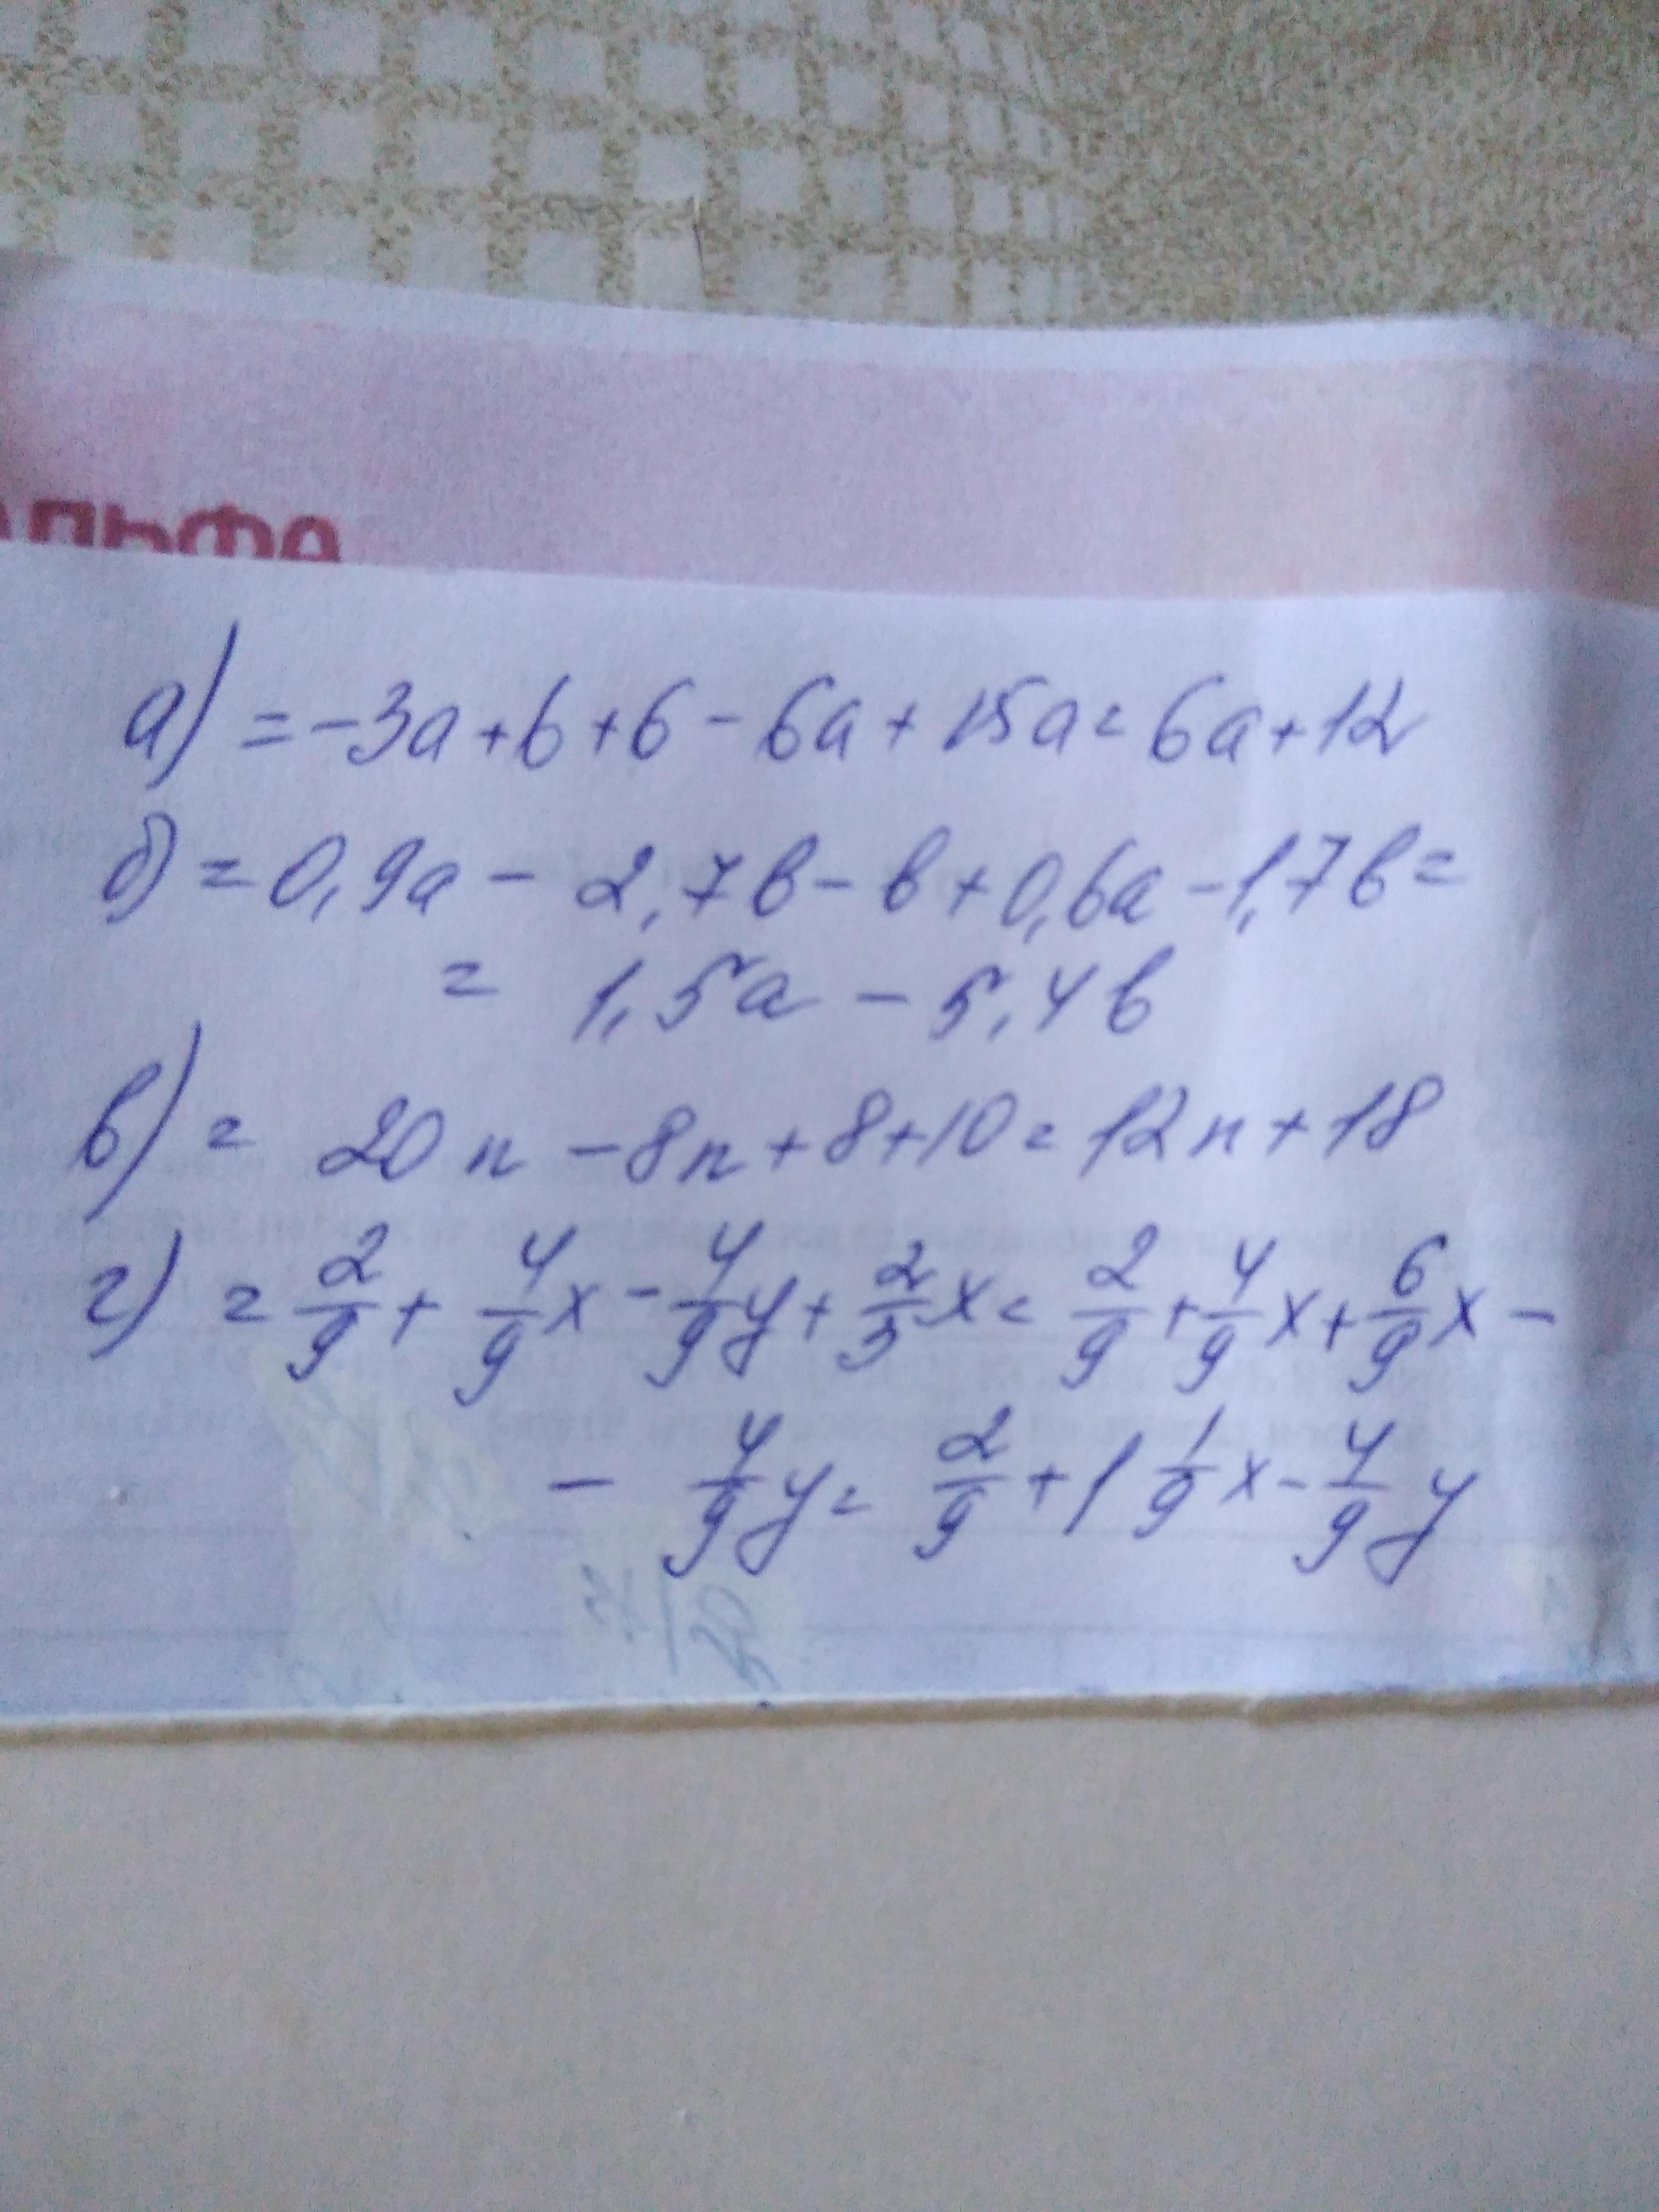 АЛЬФА
а) = -3a + 6 + 6 - 6a + 15a = 6a + 12
б) = 0,9a - 2,7b - b + 0,6a - 1,7b =
= 1,5a - 5,4b
в) = 20n - 8n + 8 + 10 = 12n + 18
г) = 2/9 + 4/9 x - 4/9 y + 2/3 x = 2/9 + 4/9 x + 6/9 x -
- 4/9 y = 2/9 + 1 1/9 x - 4/9 y